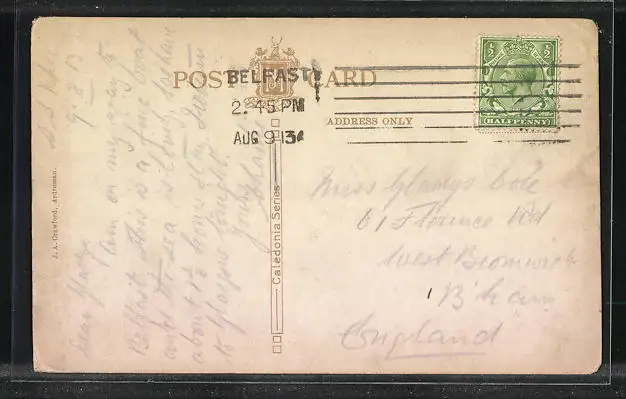 POST CARD
BELFAST
2.45 PM
AUG 9 13
ADDRESS ONLY
HALFPENNY
J. A. Crawford, Ardrossan.
Caledonia Series
9.8.13
Dear Gladys
Am on my way to
Belfast. This is a fine boat
and the sea is have
about 1½ hours stay. Return
to Glasgow tonight.
Miss Gladys Cole
61 Florence Rd
West Bromwich
B'ham
England